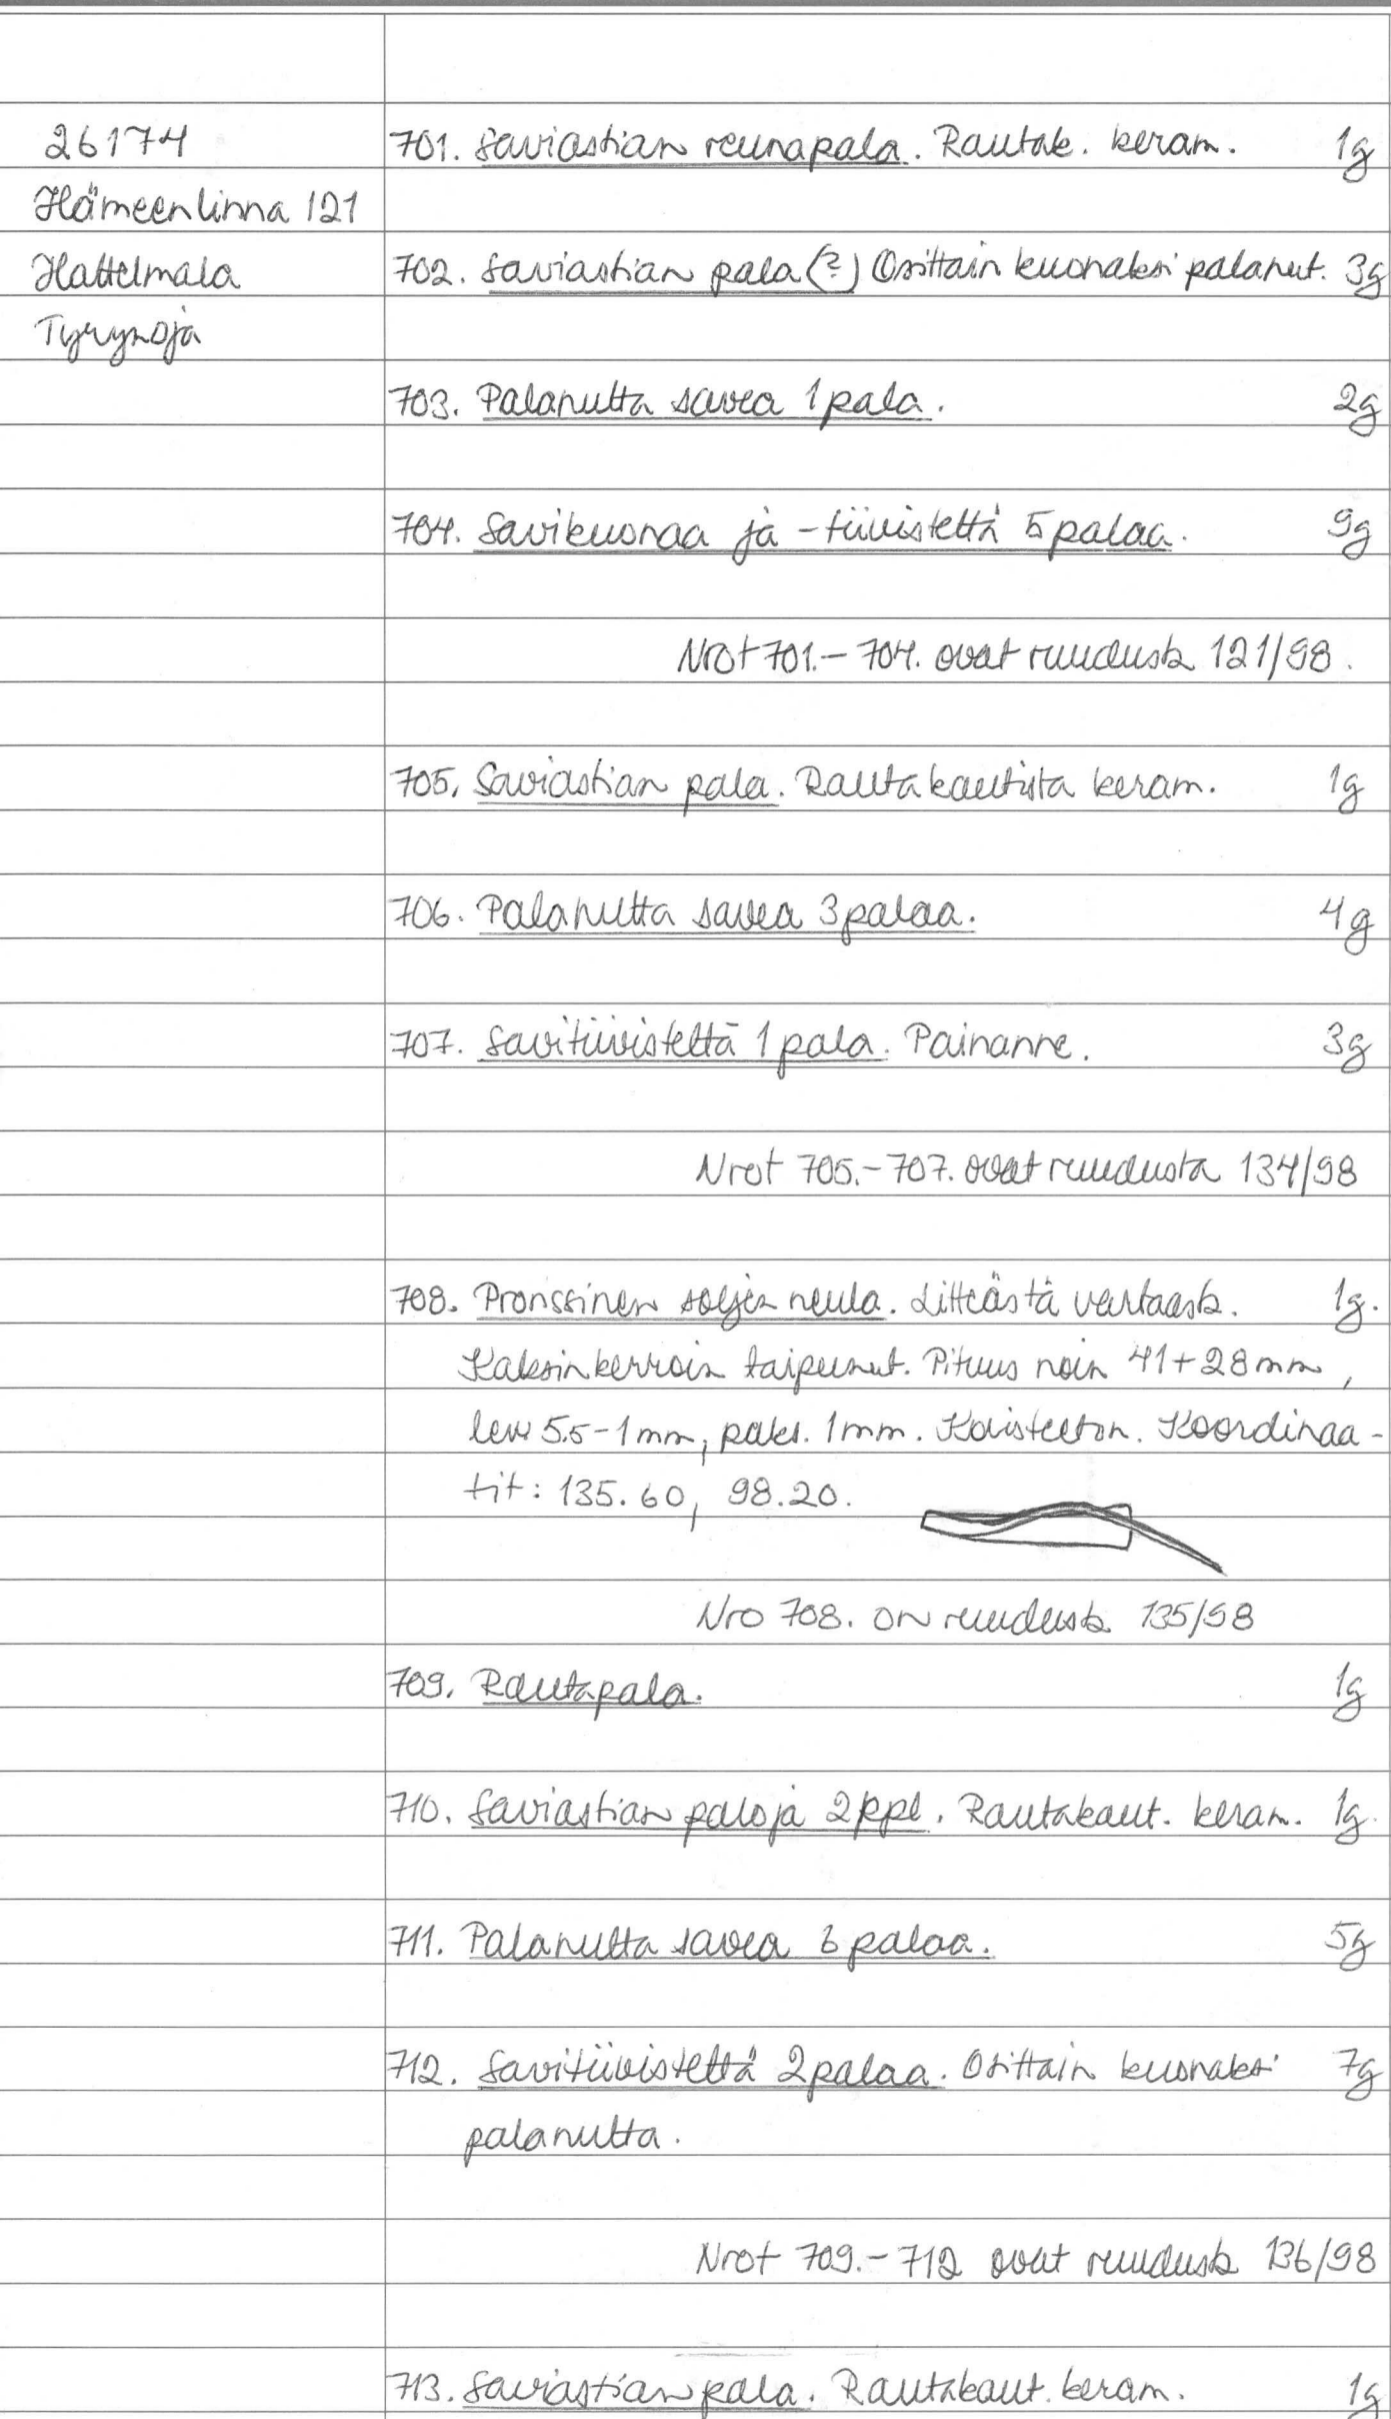 26174
Hämeenlinna 121
Hattelmala
Tyrynoja
701. Saviastian reunapala. Rautak. keram. 1g
702. Saviastian pala (?) Osittain kuonaksi palanut. 3g
703. Palanutta savea 1 pala. 2g
704. Savikuonaa ja -tiivistettä 5 palaa. 9g
Nrot 701.-704. ovat ruudusta 121/98.
705. Saviastian pala. Rautakautista keram. 1g
706. Palanutta savea 3 palaa. 4g
707. Savitiivistettä 1 pala. Painanne. 3g
Nrot 705.-707. ovat ruudusta 134/98
708. Pronssinen soljen neula. Litteästä vartaasta. 1g.
Kaksinkerroin taipunut. Pituus noin 41+28 mm,
lev. 5.5-1 mm, paks. 1mm. Koristeeton. Koordinaa-
tit: 135.60, 98.20.
Nro 708. on ruudusta 135/98
709. Rautapala. 1g
710. Saviastian paloja 2 kpl. Rautakaut. keram. 1g.
711. Palanutta savea palaa. 5g
712. Savitiivistettä 2 palaa. Osittain kuonaksi 7g
palanutta.
Nrot 709.-712 ovat ruudusta 136/98
713. Saviastian pala. Rautakaut. keram. 1g